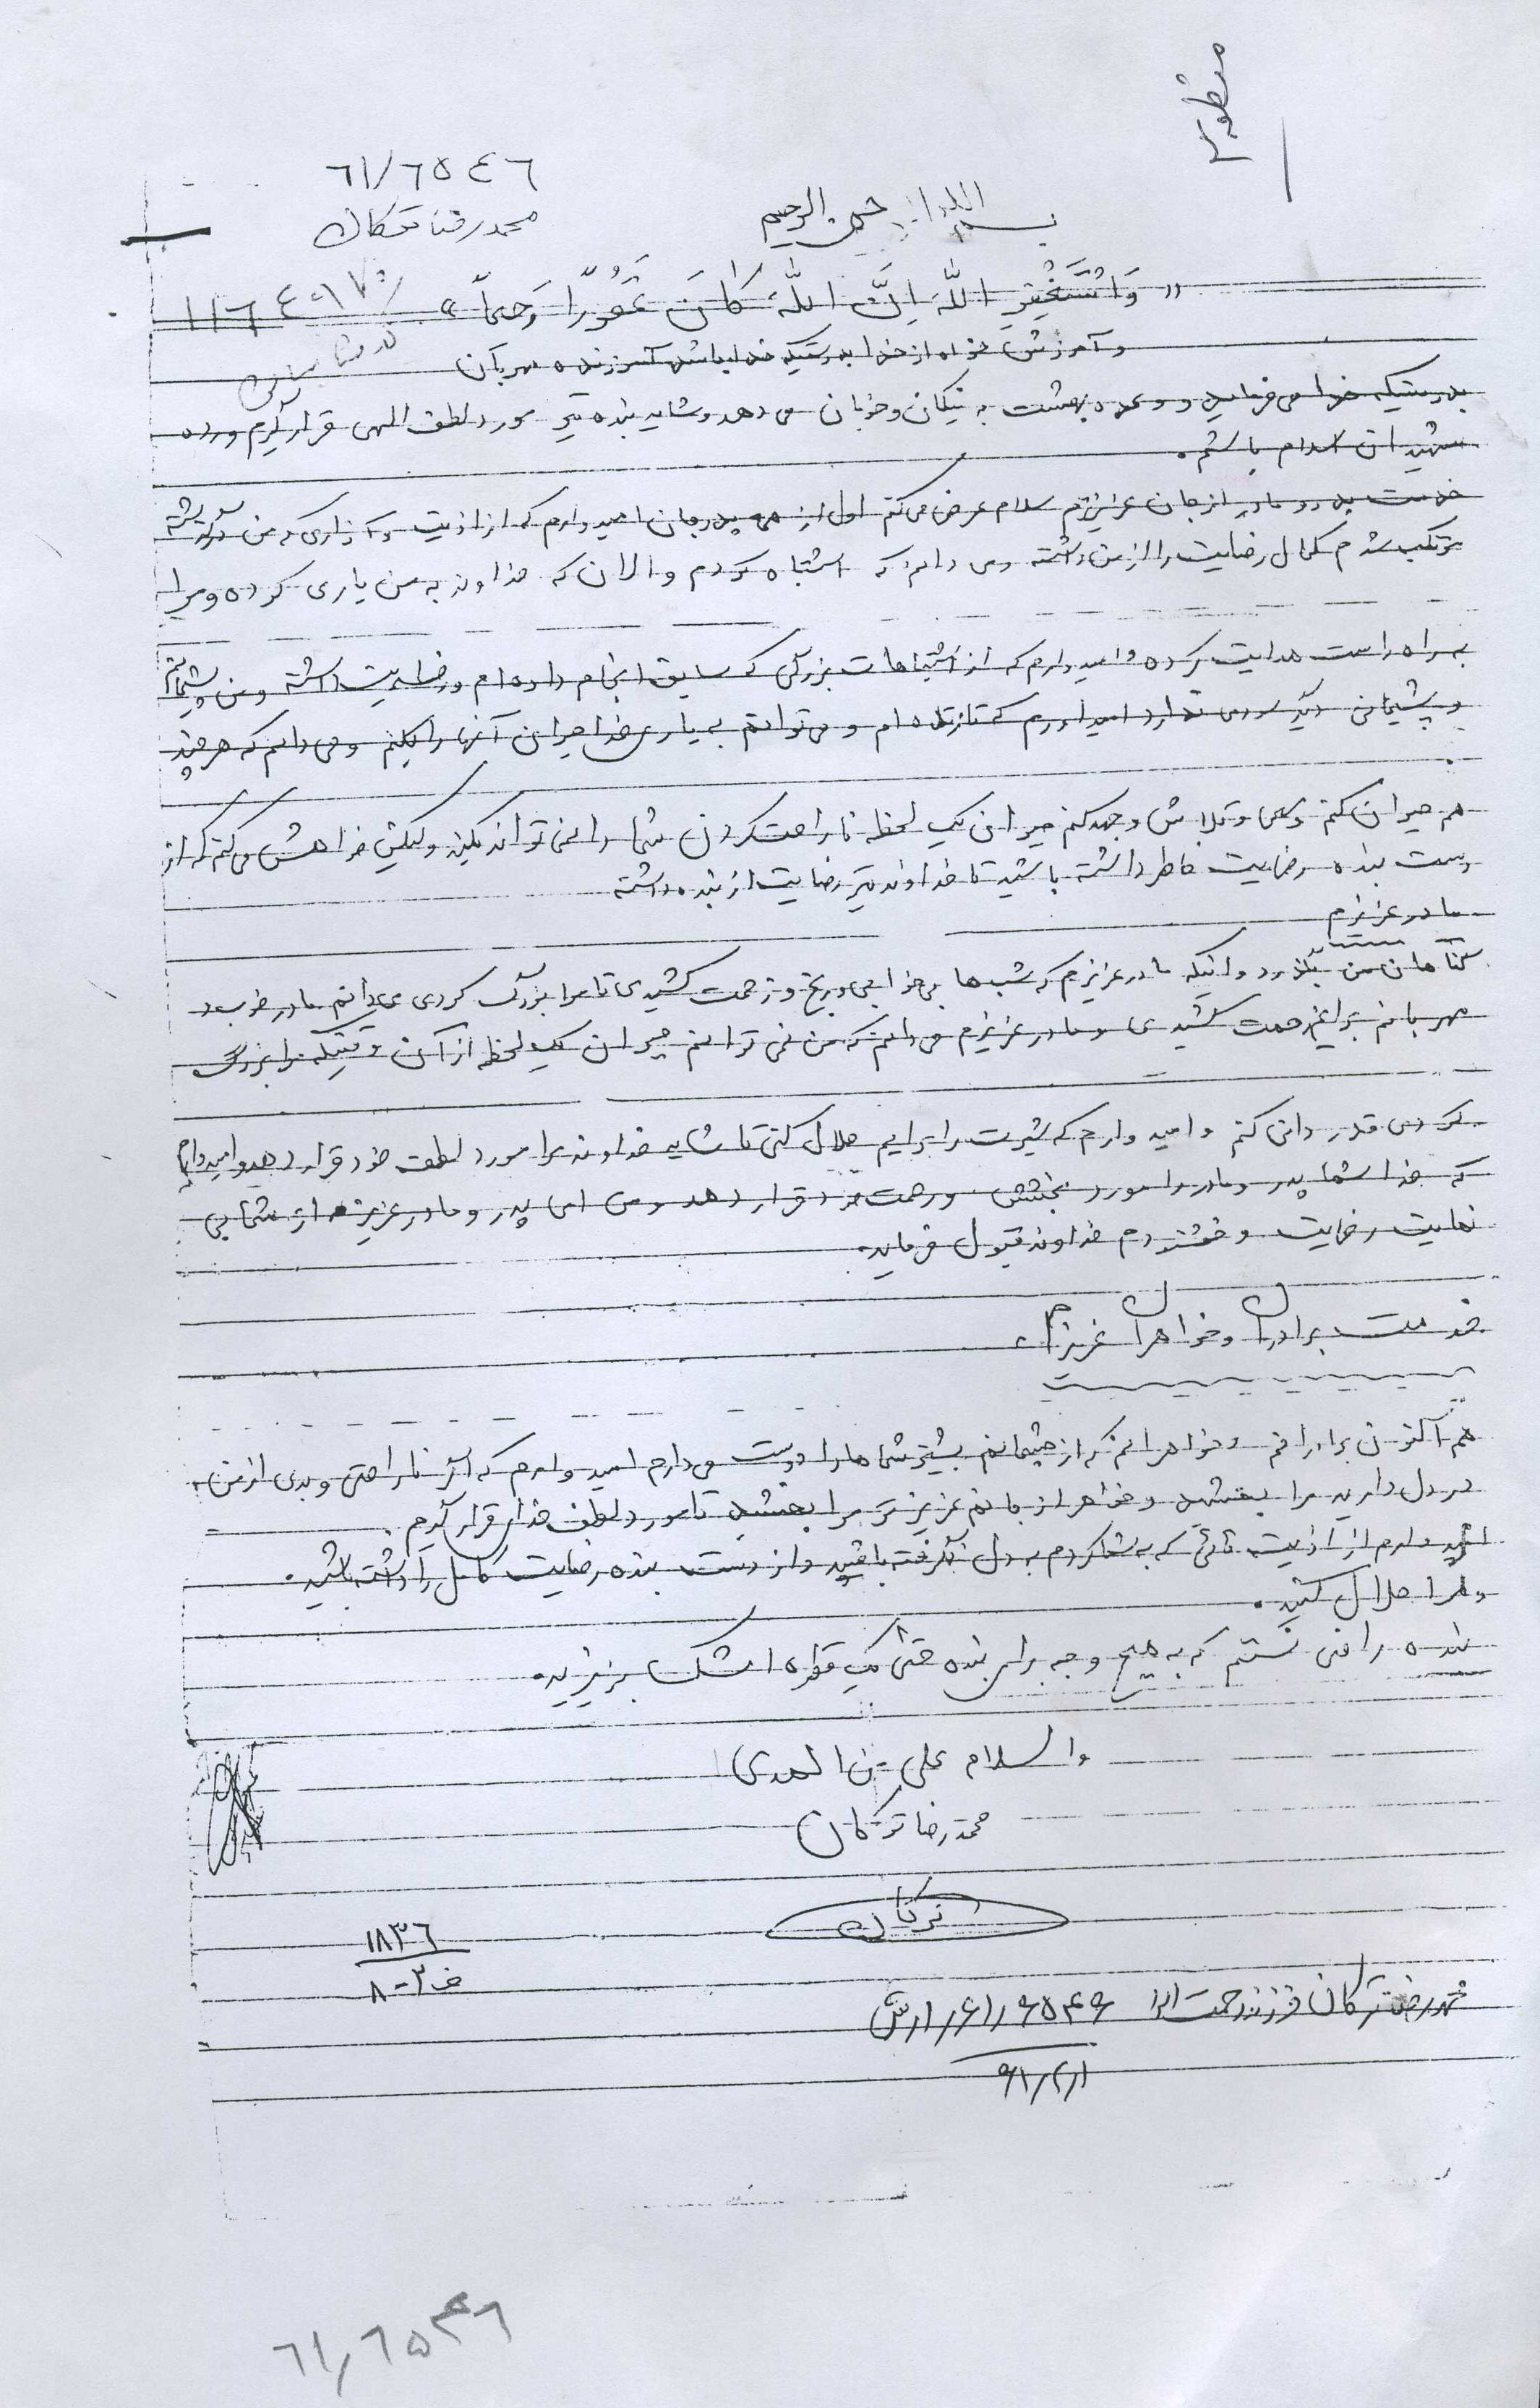 منظوم
٦١/٦٥٤٦
محمدرضا ترکان
بسم الله الرحمن الرحیم
« وَاسْتَغْفِرِ اللهَ اِنَّ اللهَ کانَ غَفُورًا رَحیماً »
١١٦٤٠١٧
و آمرزش خواه از خدا بدرستیکه خدا باشد آمرزنده مهربان
بدرستیکه خدا می فرماید و وعده بهشت به نیکان و خوبان می دهد و شاید بنده نیز مورد لطف الهی قرار گیرم و رده
شهیدان اسلام باشم.
خدمت پدر و مادر از جان عزیزترم سلام عرض می کنم اول از همه پدر جان امیدوارم که از اذیت و آزاری که من در گذشته
مرتکب شدم کمال رضایت را از من داشته و می دانم که اشتباه کردم و الان که خداوند به من یاری کرده و مرا
به راه راست هدایت کرده و امیدوارم که از اشتباهات بزرگی که سابق انجام داده ام و رضایت داشته و من پشیمانم
و پشیمانی دیگر سودی ندارد امیدوارم که تا زنده ام و می توانم به یاری خدا جبران آنها را بکنم و می دانم که هر چند
هم جبران کنم و سعی و تلاش و جهد کنم جبران یک لحظه ناراحت کردن شما را نمی تواند بکند ولیکن خواهش می کنم که از
دست بنده رضایت خاطر داشته باشید تا خداوند نیز رضایت از بنده داشته
مادر عزیزم
گناهان من بگذرد و اینکه مادر عزیزم که شبها بی خوابی و رنج و زحمت کشیدی تا مرا بزرگ کردی می دانم مادر خوب و
مهربانم برایم زحمت کشیدی و مادر عزیزم می دانم که من نمی توانم جبران یک لحظه از آن وقتیکه مرا بزرگ
کردی قدردانی کنم و امیدوارم که شیرت را برایم حلال کنی تا شاید خداوند مرا مورد لطف خود قرار دهد و امیدوارم
که خدا شما پدر و مادر را مورد بخشش و رحمت خود قرار دهد و من ای پدر و مادر عزیزم از شما بی
نهایت رضایت و خشنودم خداوند قبول فرماید.
خدمت برادران و خواهران عزیزم،
هم اکنون برادرانم و خواهرانم که از چشمانم بیشتر شماها را دوست می دارم امیدوارم که اگر ناراحتی و بدی از من
در دل دارید مرا ببخشید و خواهر از جانم عزیزتر مرا ببخشید تا مورد لطف خدای قرار گیرم.
امیدوارم از اذیت هائی که به شما کردم به دل نگرفته باشید و از دست بنده رضایت کامل را داشته باشید.
و مرا حلال کنید.
بنده راضی نیستم که به هیچ وجه برای بنده حتی یک قطره اشک بریزید.
والسلام علی من الهدی
محمدرضا ترکان
ترکان
١٨٣٦
محمدرضا ترکان فرزند رحمت اله ۶۱/۶۵۴۶ ارتش
۶۱/۲/۱
٦١/٦٥٤٦